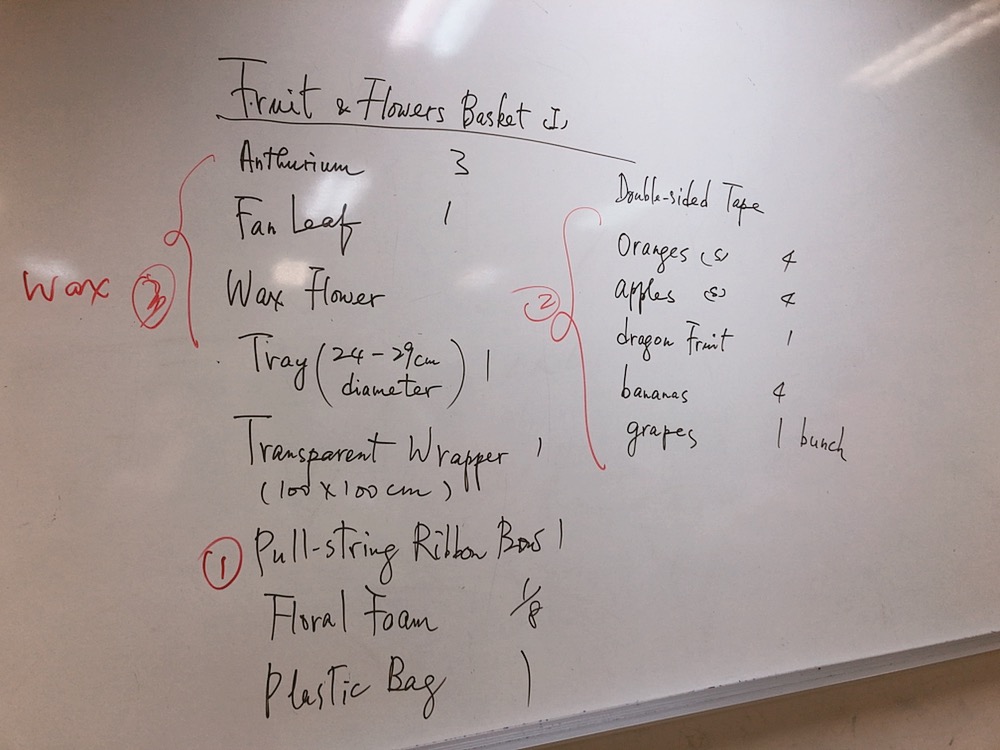 Fruit & Flowers Basket I,
Anthurium 3
Fan Leaf 1
Wax ③ Wax Flower
Tray (24-29cm diameter) 1
Transparent Wrapper 1
(100 x 100 cm)
① Pull-string Ribbon Bows 1
Floral Foam 1/8
Plastic Bag 1
Double-sided Tape
Oranges (s) 4
② apples (s) 4
dragon Fruit 1
bananas 4
grapes 1 bunch